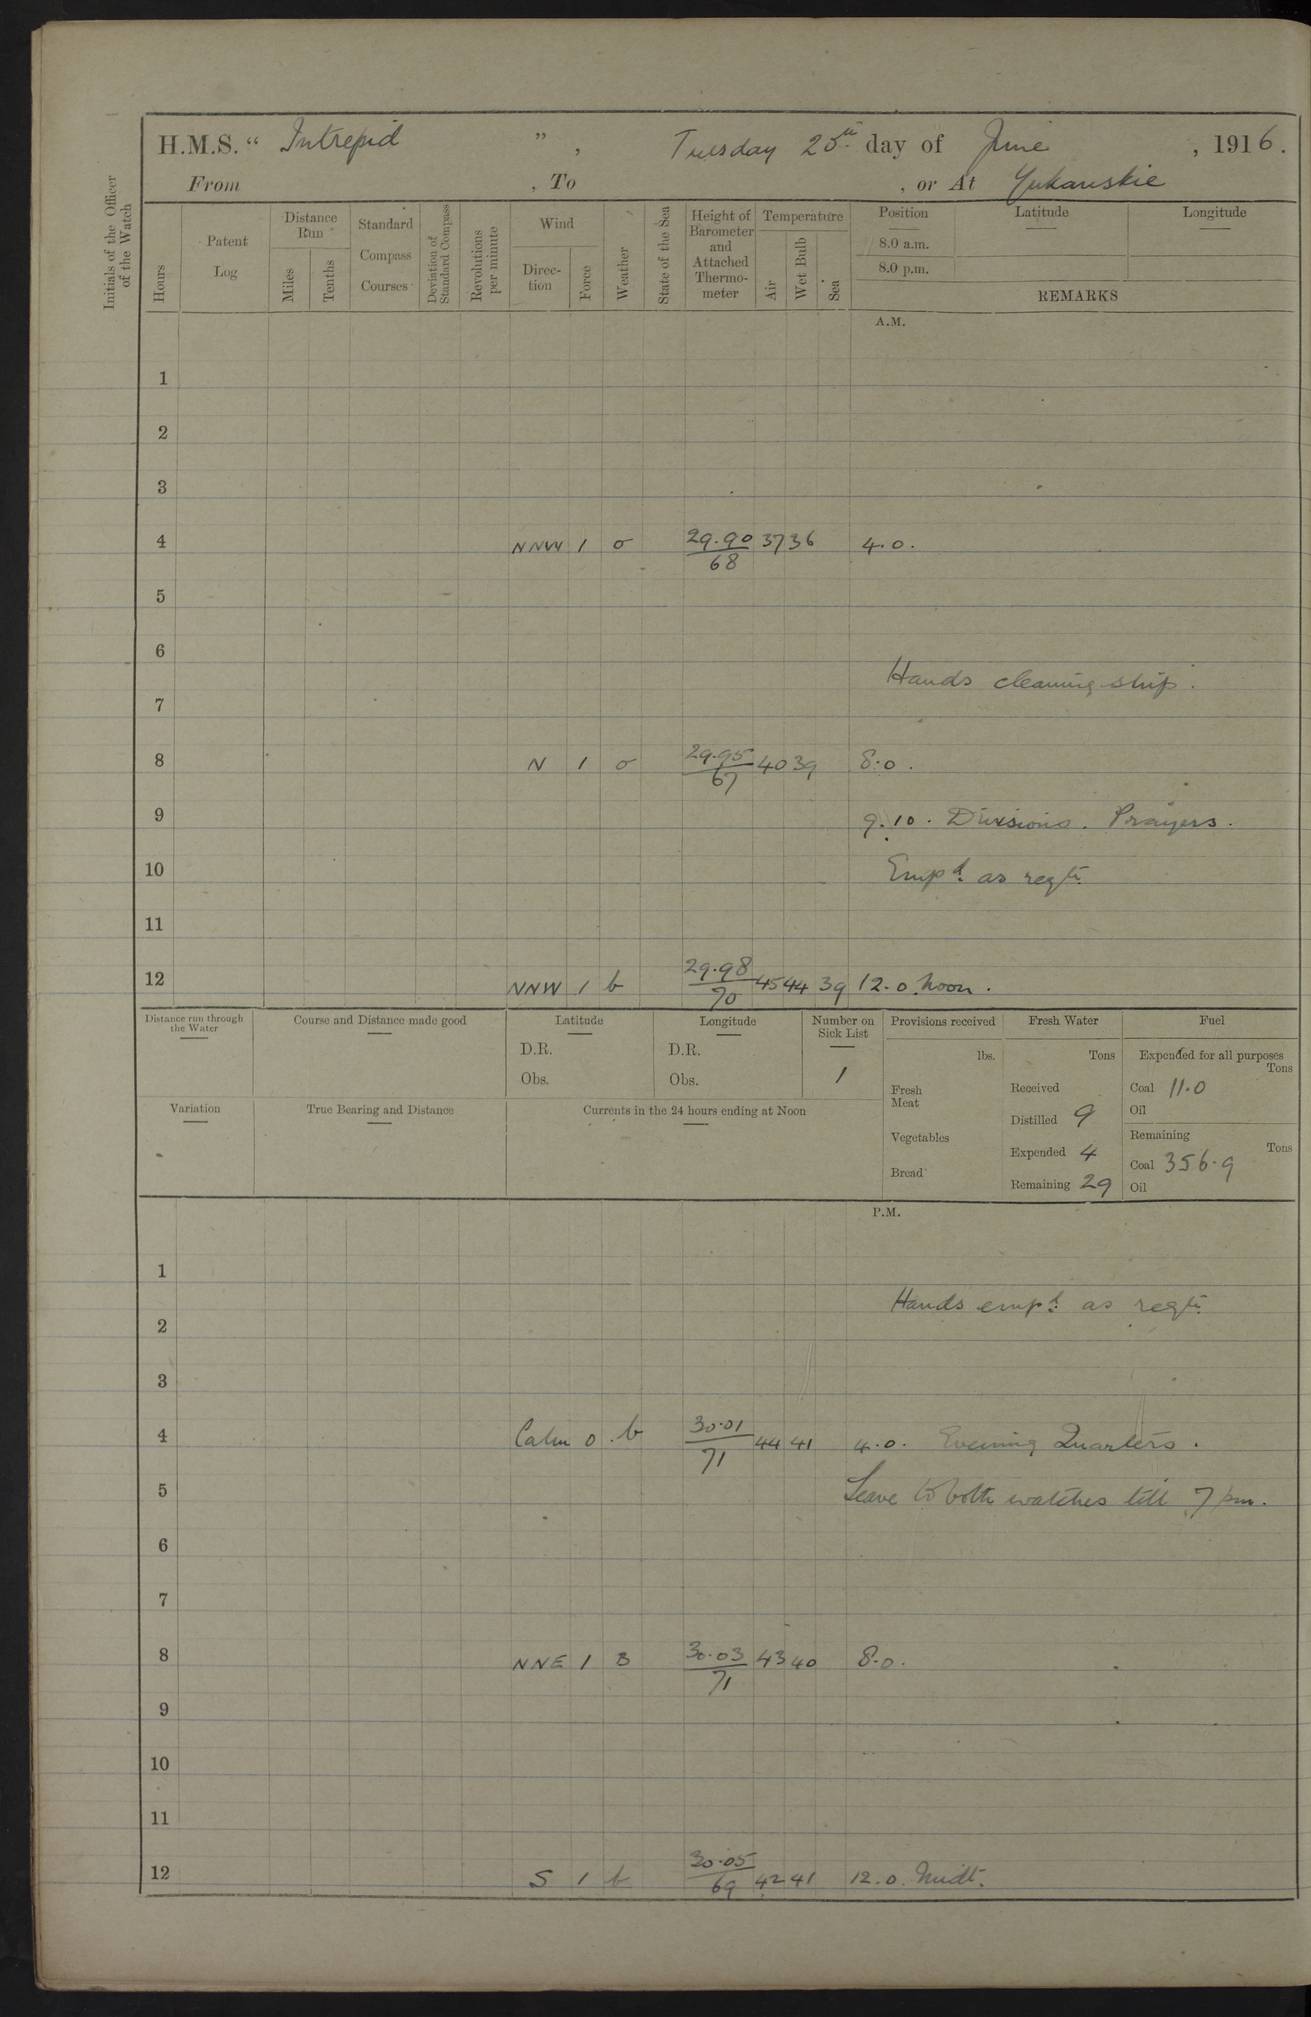 H.M.S. " Intrepid ", Tuesday 20th day of June, 1916.
From , To , or At Yukanskie
Initials of the Officer of the Watch
Hours
Patent Log
Distance Run
Miles
Tenths
Standard Compass Courses
Deviation of Standard Compass
Revolutions per minute
Wind
Direction
Force
Weather
State of the Sea
Height of Barometer and Attached Thermometer
Temperature
Air
Wet Bulb
Sea
Position Latitude Longitude
8.0 a.m.
8.0 p.m.
REMARKS
A.M.
1
2
3
4 NNW 1 o 29.90/68 37 36 4.0.
5
6
Hands cleaning ship.
7
8 N 1 o 29.95/67 40 39 8.0.
9 9.10. Divisions. Prayers.
10 Empd. as reqte.
11
12 NNW 1 b 29.98/70 45 44 39 12.0 noon.
Distance run through the Water
Course and Distance made good
Latitude
D.R.
Obs.
Longitude
D.R.
Obs.
Number on Sick List
1
Provisions received
lbs.
Fresh Meat
Vegetables
Bread
Fresh Water
Tons
Received
Distilled 9
Expended 4
Remaining 29
Fuel
Expended for all purposes
Tons
Coal 11.0
Oil
Remaining
Tons
Coal 356.9
Oil
Variation
True Bearing and Distance
Currents in the 24 hours ending at Noon
P.M.
1
Hands empd. as reqte.
2
3
4 Calm 0 b 30.01/71 44 41 4.0. Evening Quarters.
5 Leave to both watches till 7 pm.
6
7
8 NNE 1 B 30.03/71 43 40 8.0.
9
10
11
12 S 1 b 30.05/69 42 41 12.0. Midt.